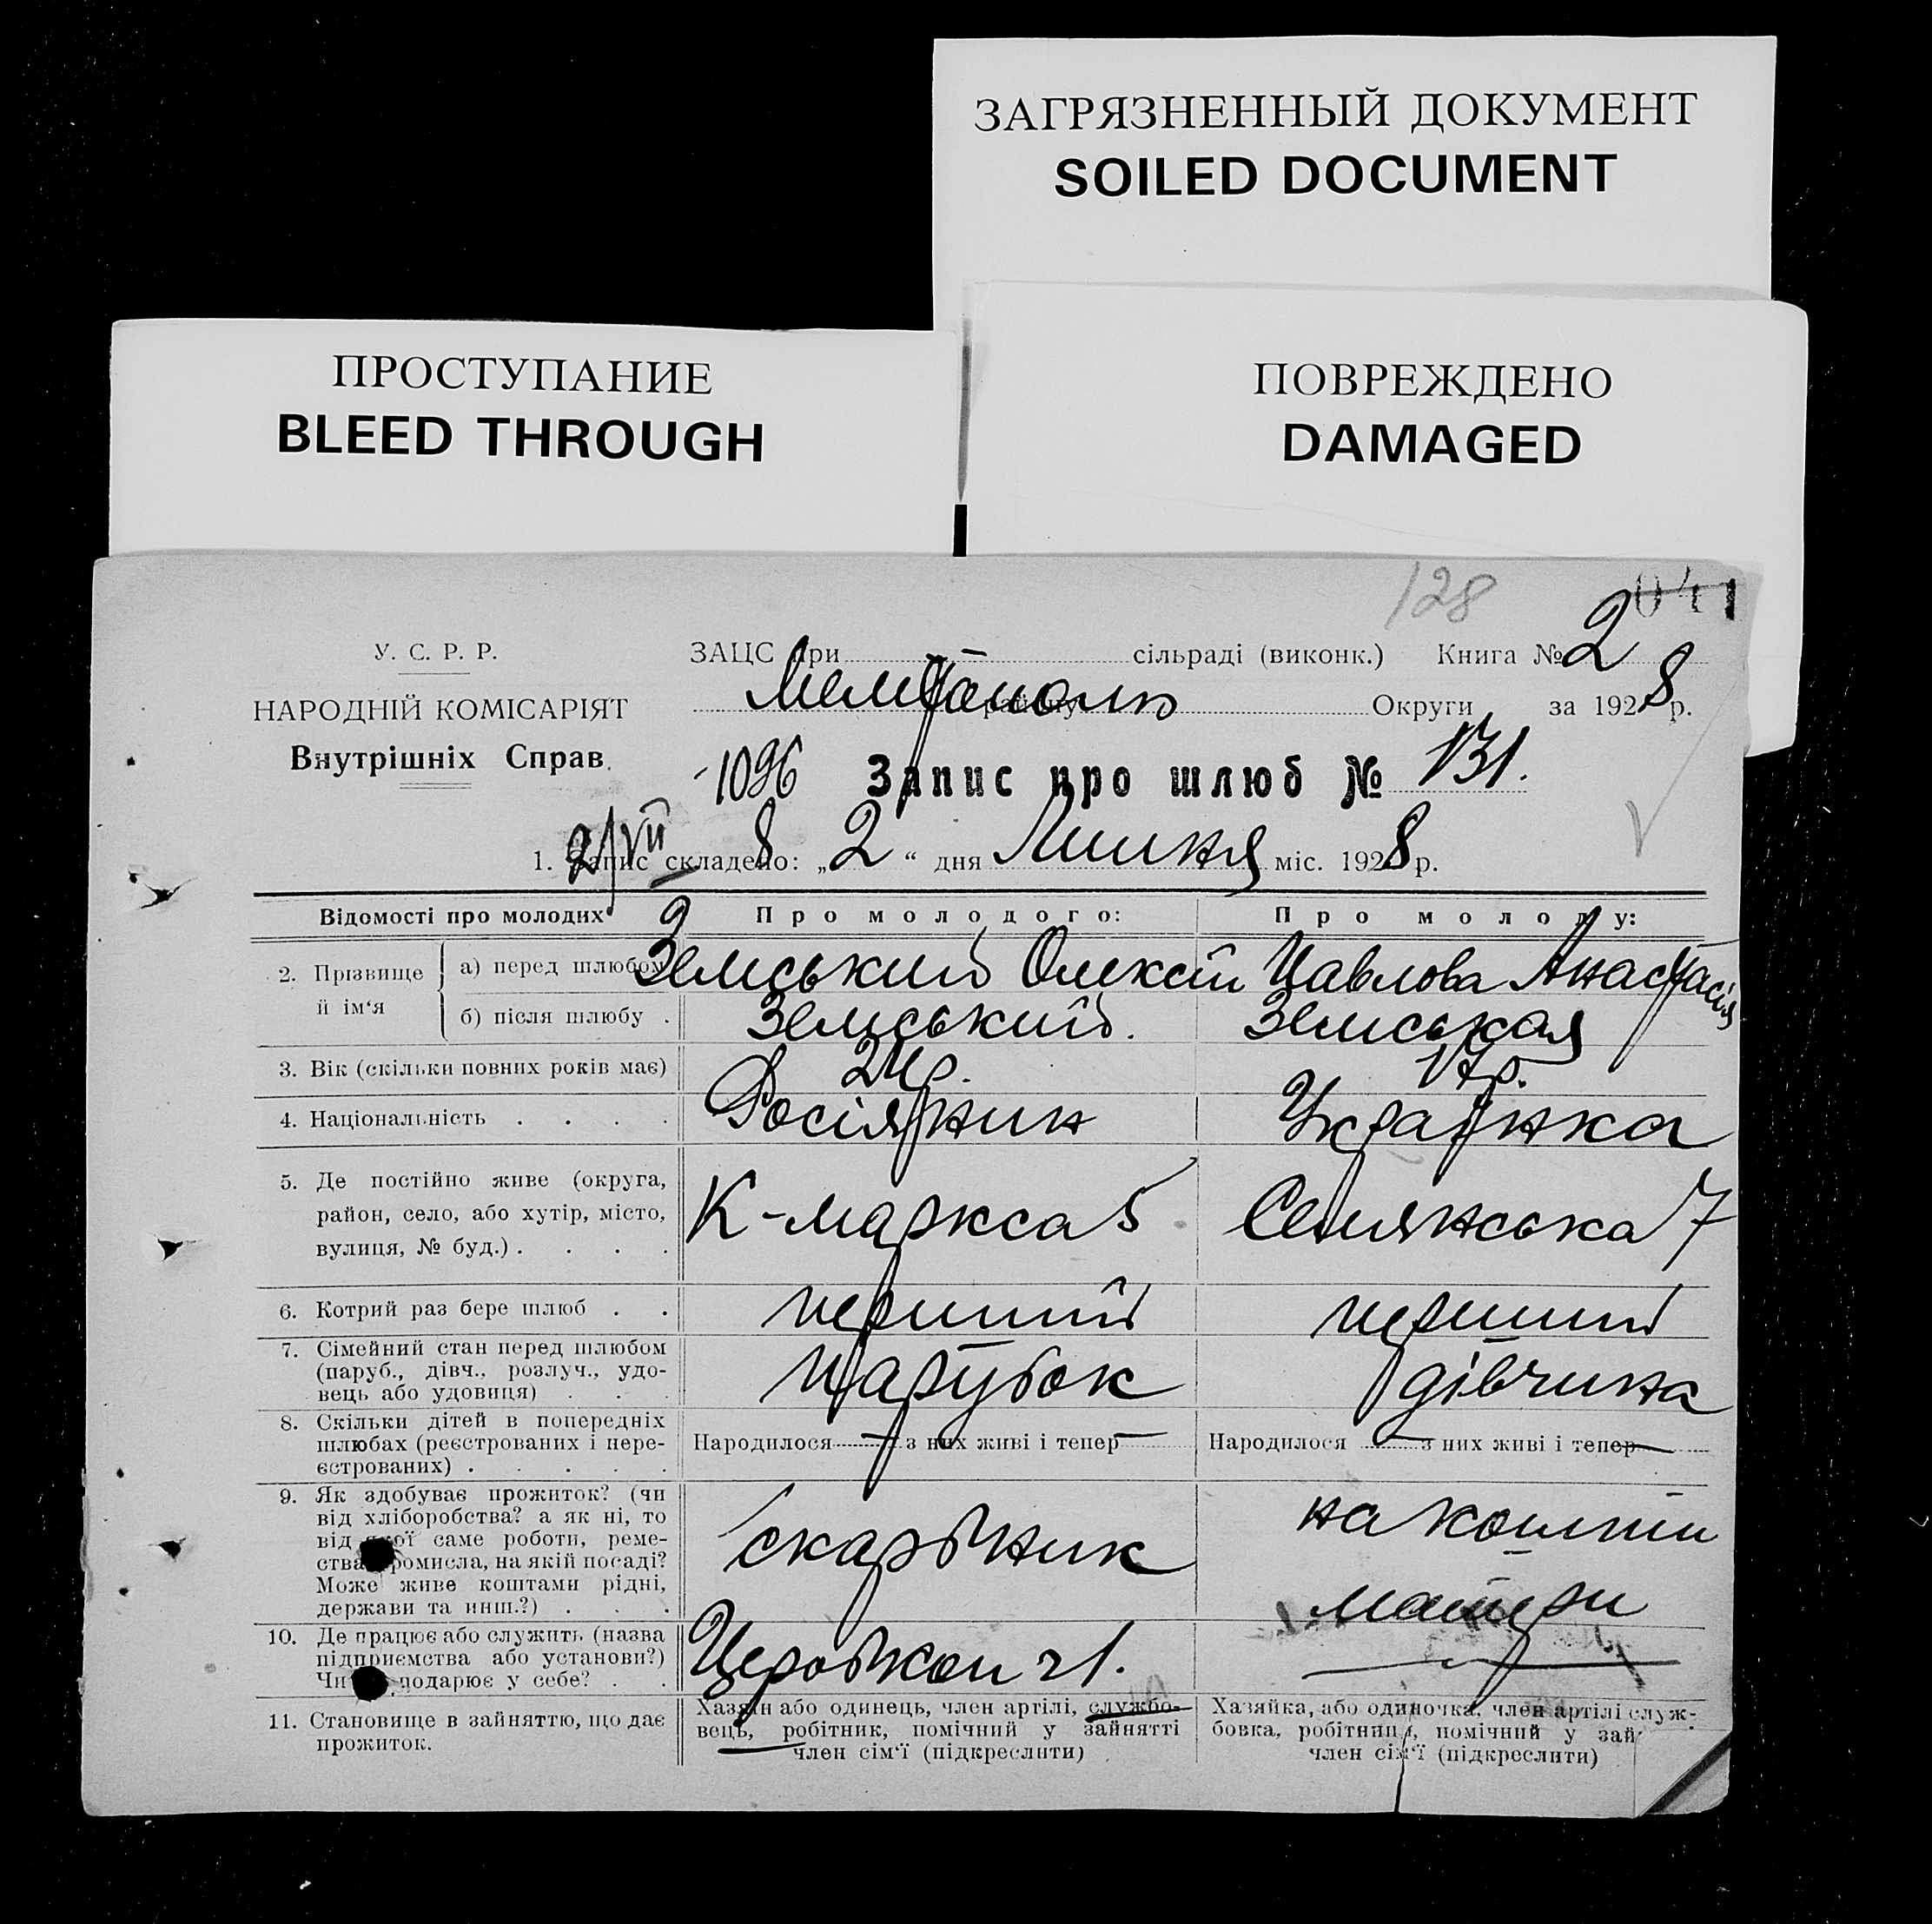 ЗАГРЯЗНЕННЫЙ ДОКУМЕНТ
SOILED DOCUMENT
ПРОСТУПАНИЕ
BLEED THROUGH
ПОВРЕЖДЕНО
DAMAGED
128
041
У. С. Р. Р.
НАРОДНІЙ КОМІСАРІЯТ
Внутрішніх Справ.
ЗАЦС при сільраді (виконк.) Книга № 2
району Округи за 1928 р.
1096 Запис про шлюб № 131.
2/VII 8
1. Запис складено: „2“ дня Липня міс. 1928 р.
Відомості про молодих Про молодого: Про молоду:
2. Прізвище й ім‘я
а) перед шлюбом Земський Олексій Павлова Анастасія
б) після шлюбу . Земський. Земская
3. Вік (скільки повних років має) 24 р. 17 р.
4. Національність . . . . Росіянин Українка
5. Де постійно живе (округа,
район, село, або хутір, місто,
вулиця, № буд.) . . . .
К-Маркса 5 Селянська 7
6. Котрий раз бере шлюб . . перший перший
7. Сімейний стан перед шлюбом
(паруб., дівч., розлуч., удо-
вець або удовиця) . . .
парубок дівчина
8. Скільки дітей в попередніх
шлюбах (реєстрованих і нере-
єстрованих) . . . . .
Народилося — з них живі і тепер — Народилося — з них живі і тепер —
9. Як здобуває прожиток? (чи
від хліборобства? а як ні, то
від якої саме роботи, реме-
ства промисла, на якій посаді?
Може живе коштами рідні,
держави та инш.?) . . .
на кошти
матери
10. Де працює або служить (назва
підприємства або установи?)
Чи подарює у себе? . .
11. Становище в зайняттю, що дає
прожиток.
Хазяїн або одинець, член артілі, службо-
вець, робітник, помічний у зайнятті
член сім‘ї (підкреслити)
Хазяйка, або одиночка, член артілі служ-
бовка, робітниця, помічний у зай
член сім‘ї (підкреслити)